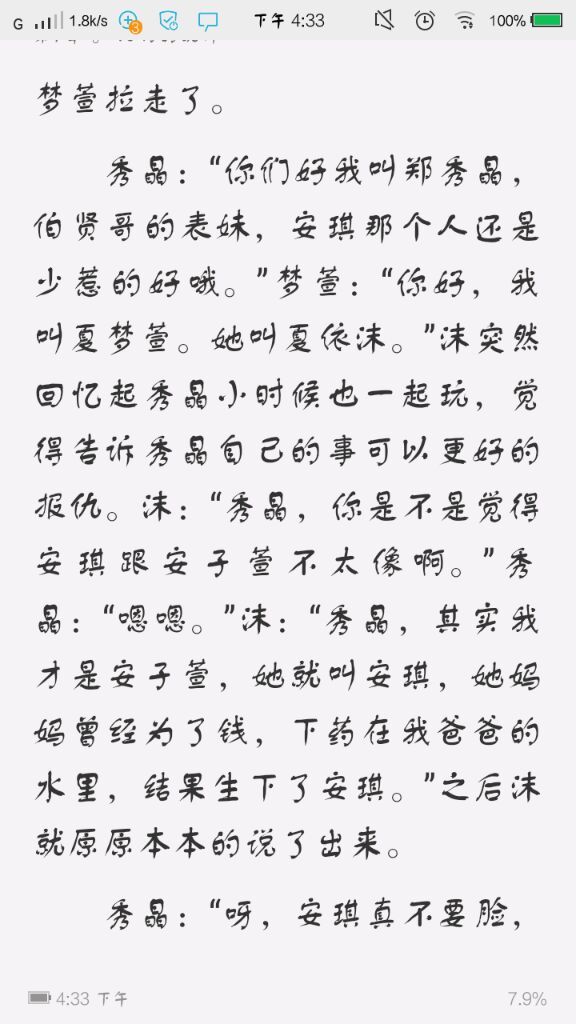 G 1.8k/s 3 下午 4:33 100%
梦萱拉走了。
秀晶：“你们好我叫郑秀晶，
伯贤哥的表妹，安琪那个人还是
少惹的好哦。”梦萱：“你好，我
叫夏梦萱。她叫夏依沫。”沫突然
回忆起秀晶小时候也一起玩，觉
得告诉秀晶自己的事可以更好的
报仇。沫：“秀晶，你是不是觉得
安琪跟安子萱不太像啊。”秀
晶：“嗯嗯。”沫：“秀晶，其实我
才是安子萱，她就叫安琪，她妈
妈曾经为了钱，下药在我爸爸的
水里，结果生下了安琪。”之后沫
就原原本本的说了出来。
秀晶：“呀，安琪真不要脸，
4:33 下午 7.9%